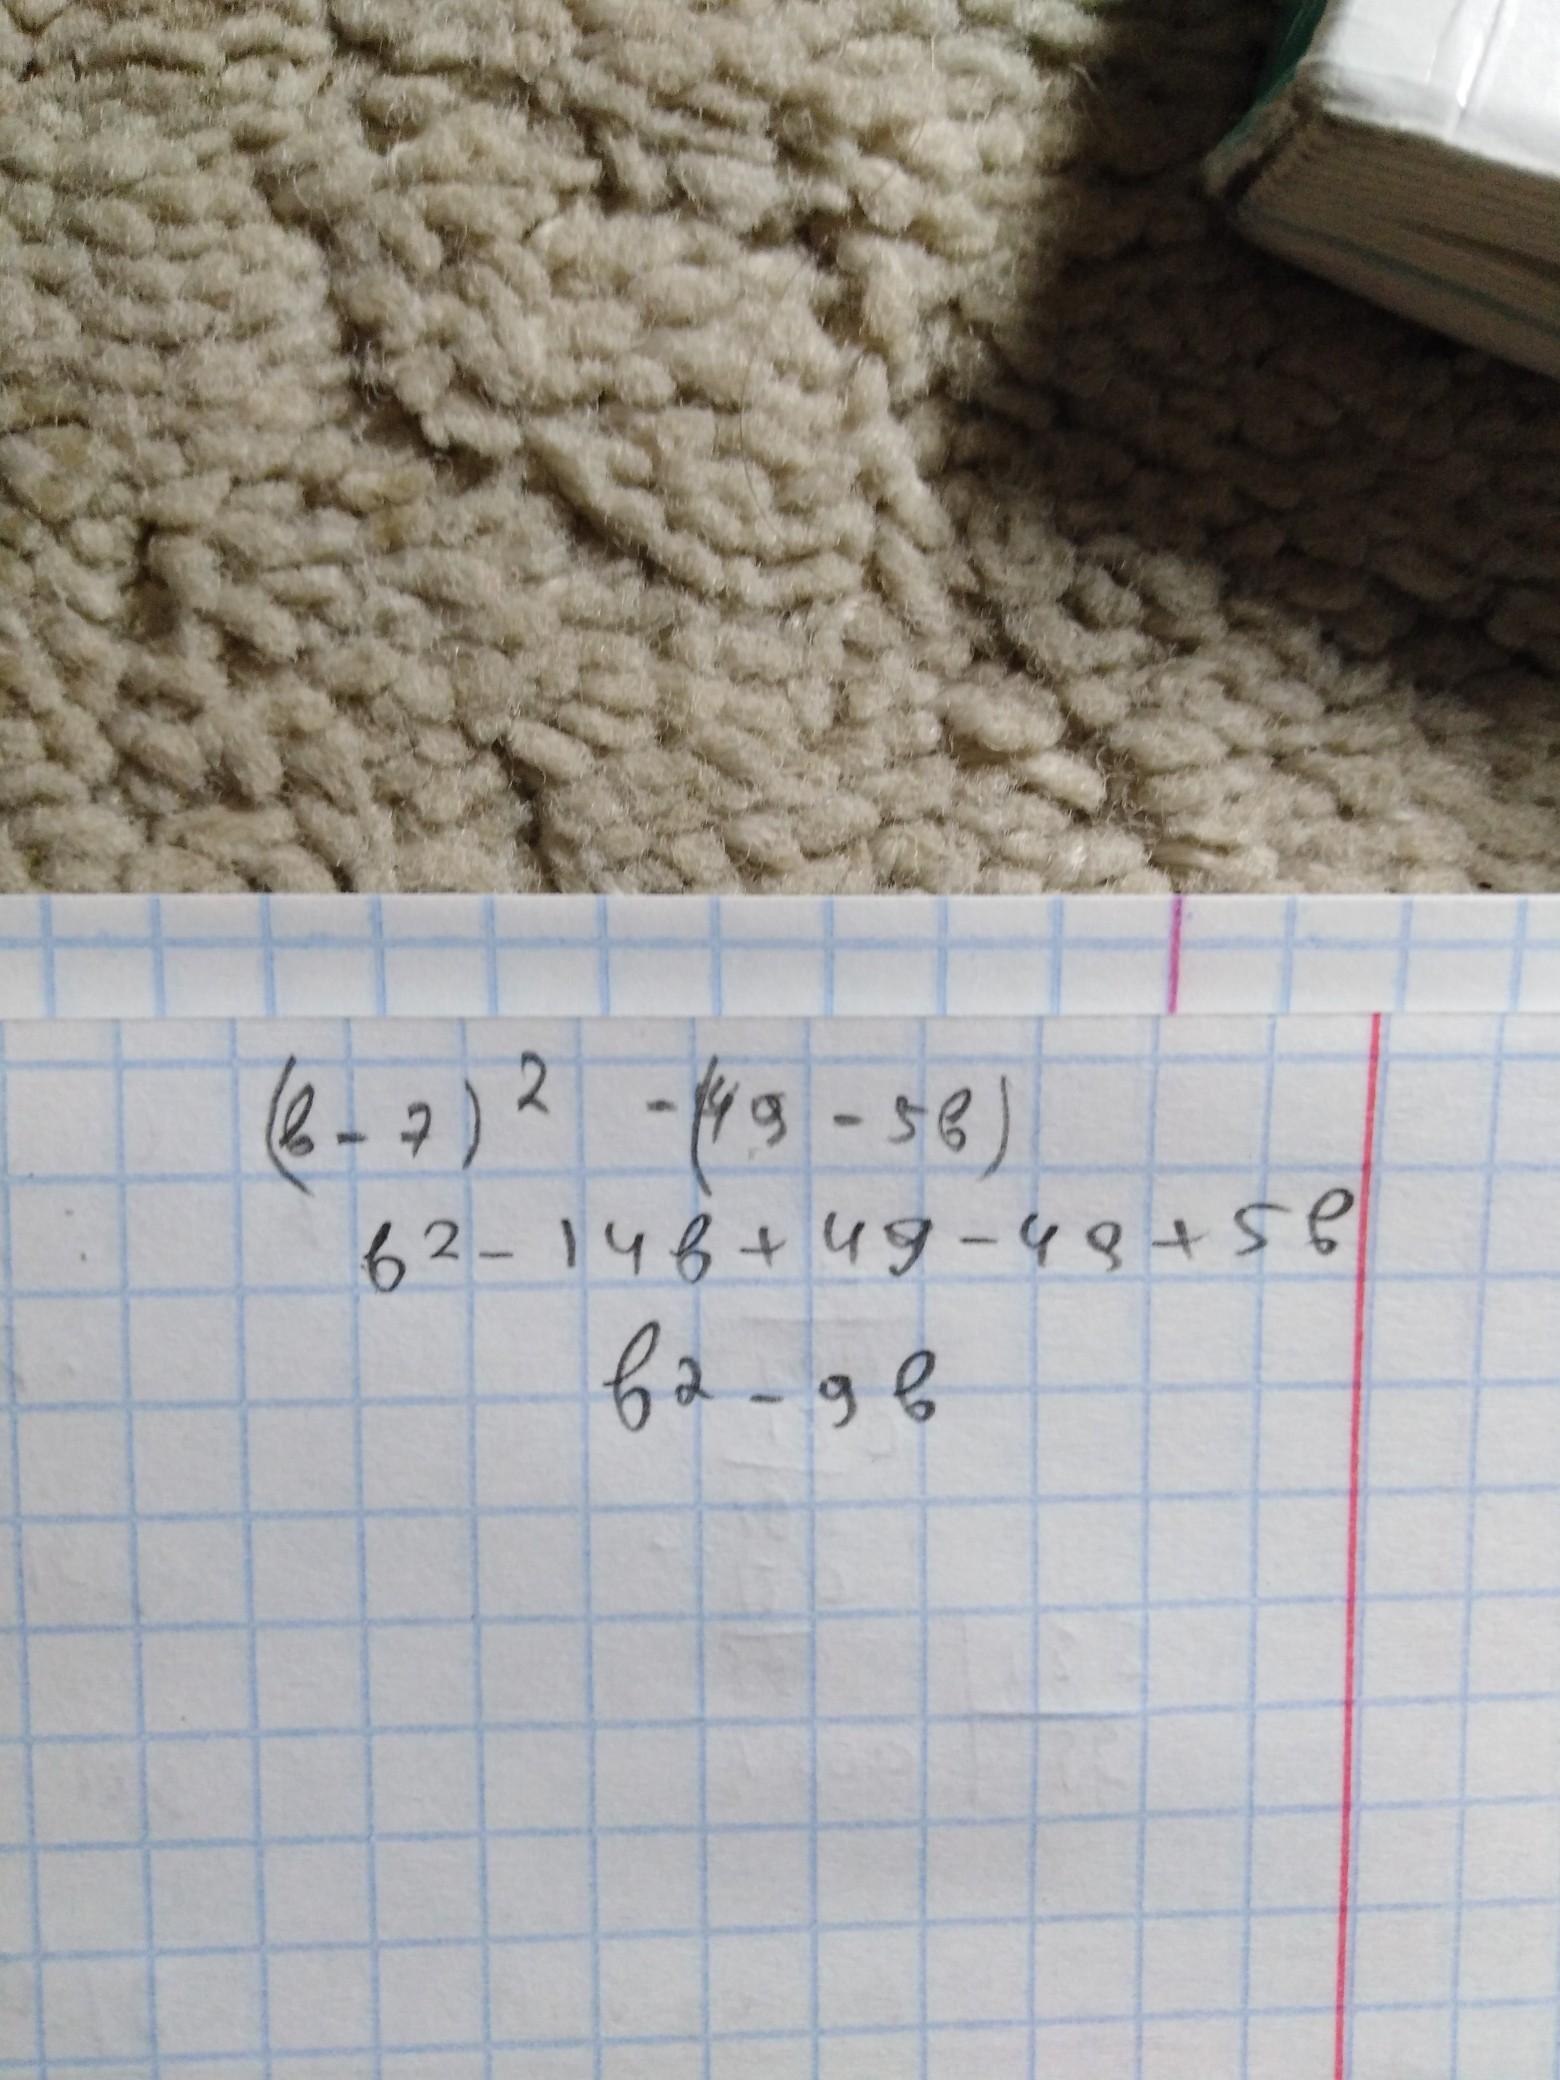 (b-7)² -(49-5b)
b2-14b+49-49+5b
b2-9b